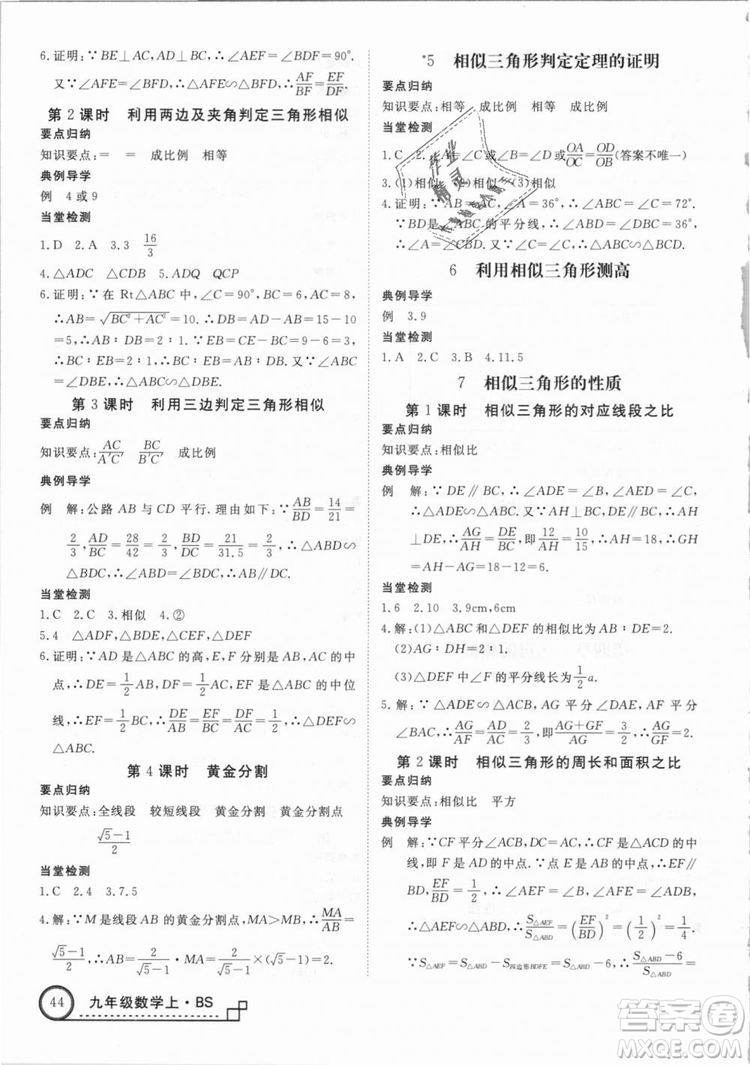 6.证明：∵BE⊥AC，AD⊥BC，∴∠AEF=∠BDF=90°.
又∵∠AFE=∠BFD，∴△AFE∽△BFD，∴AF/BF=EF/DF.
第2课时 利用两边及夹角判定三角形相似
要点归纳
知识要点：= = 成比例 相等
典例导学
例 4或9
当堂检测
1.D 2.A 3.3 16/3
4.△ADC 5.AQD QCP
6.证明：∵在Rt△ABC中，∠C=90°，BC=6，AC=8，
∴AB=√(BC²+AC²)=10.∴DB=AD-AB=15-10
=5，∴AB∶DB=2∶1.∵EB=CE-BC=9-6=3，
∴BC∶EB=2∶1，∴AB∶DB=BC∶EB.又∵∠ABC
=∠DBE，∴△ABC∽△DBE.
第3课时 利用三边判定三角形相似
要点归纳
知识要点：AC/A'C' BC/B'C' 成比例
典例导学
例 解：公路AB与CD平行.理由如下：∵AB/BD=14/21=
2/3，AD/BC=28/42=2/3，BD/DC=21/31.5=2/3，∴△ABD∽
△BDC，∴∠ABD=∠BDC，∴AB∥DC.
当堂检测
1.C 2.C 3.相似 4.②
5.4 △ADF，△DBE，△FEC，△EFD
6.证明：∵AD是△ABC的高，E，F分别是AB，AC的中点，
∴DE=1/2AB，DF=1/2AC，EF是△ABC的中位
线，∴EF=1/2BC，∴DE/AB=DF/AC=EF/BC，∴△DEF∽
△ABC.
第4课时 黄金分割
要点归纳
知识要点：全线段 较短线段 黄金分割 黄金分割点
(√5-1)/2
当堂检测
1.C 2.4 3.7.5
4.解：∵M是线段AB的黄金分割点，MA>MB，∴MA/AB=
44 九年级数学上·BS
*5 相似三角形判定定理的证明
要点归纳
知识要点：相等 成比例 相等 成比例
当堂检测
1.C 2.∠A=∠D或∠B=∠C或OA/OB=OD/OC(答案不唯一)
3.(1)相似 (2)相似 (3)相似
4.证明：∵AB=AC，∠A=36°，∴∠ABC=∠C=72°.
∵BD是∠ABC的平分线，∴∠DBC=36°，∴∠A=
∠DBC.又∵∠C=∠C，∴△ABC∽△BDC.
6 利用相似三角形测高
典例导学
例 3.9
当堂检测
1.A 2.C 3.B 4.11.5
7 相似三角形的性质
第1课时 相似三角形的对应线段之比
要点归纳
知识要点：相似比
典例导学
例 解：∵DE∥BC，∴∠ADE=∠B，∠AED=∠C，
∴△ADE∽△ABC.又∵AH⊥BC，DE∥BC，∴AH
⊥DE，∴AG/AH=DE/BC，即12/AH=10/15，∴AH=18，∴GH
=AH-AG=18-12=6.
当堂检测
1.6 2.10 3.9cm，6cm
4.解：(1)△ABC和△DEF的相似比为AB∶DE=2∶1.
(2)AG∶DH=2∶1.
(3)△DEF中∠F的平分线长为1/2a.
5.解：∵△ADE∽△ABC，AG平分∠DAE，AF平分
∠BAC，∴AG/AF=AD/AC=2/3，∴(AG+GF)/AG=3/2，∴AG/GF=2.
第2课时 相似三角形的周长和面积之比
要点归纳
知识要点：相似比 平方
典例导学
例 解：∵CF平分∠ACB，DC=AC，∴CF是△ACD的中
线，即F是AD的中点.∵点E是AB的中点，∴EF∥
BD，且EF/BD=1/2，∴∠AEF=∠B，∠AFE=∠ADB，
∴△AEF∽△ABD，∴S△AEF/S△ABD=(EF/BD)²=(1/2)²=1/4.
(√5-1)/2，∴MA=(√5-1)/2AB=(√5-1)/2×2=√5-1.
∵S△AEF=S△ABD-S四边形BDFE=S△ABD-6，∴(S△ABD-6)/S△ABD=
作业
精灵
答案圈
MXQE.COM